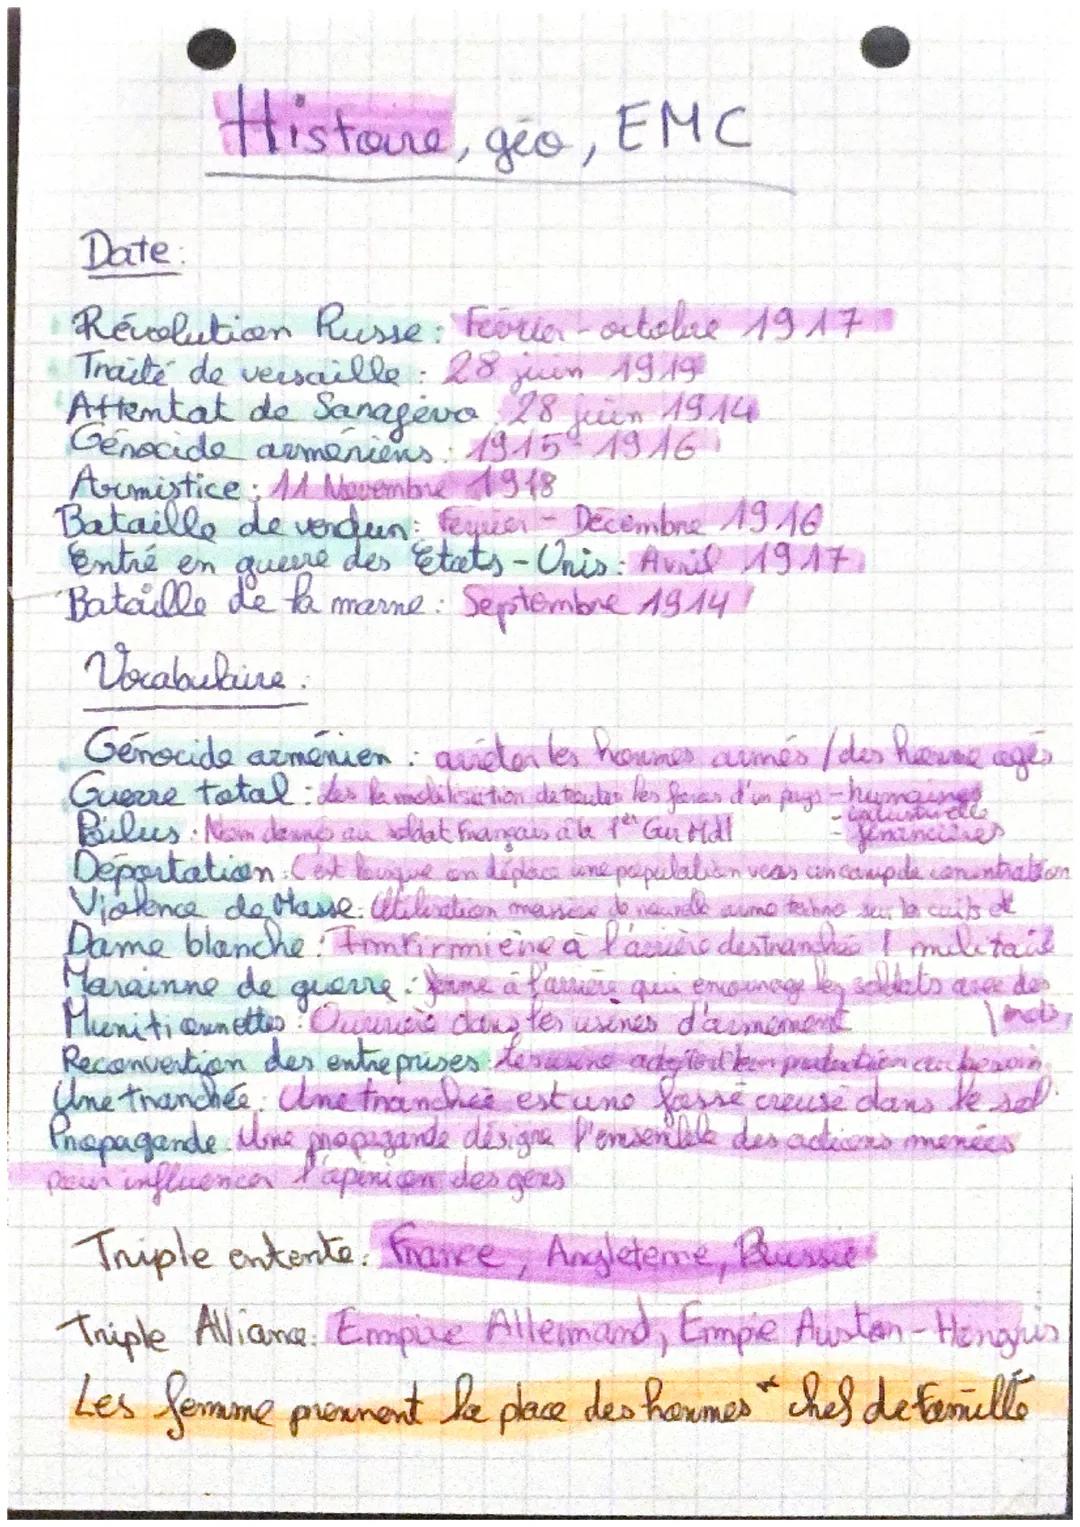 Histoire, géo, EMC
Date :
Révolution Russe : Février - octobre 1917
Traité de versaille : 28 juin 1919
Attentat de Saragévo : 28 juin 1914
Génocide arméniens : 1915 - 1916
Armistice : 11 Novembre 1918
Bataille de verdun : Février - Décembre 1916
Entré en guerre des Etats-Unis : Avril 1917
Bataille de la marne : Septembre 1914
Vocabulaire :
Génocide arménien : les hommes armés / des homme agés
Guerre total : la mobilisation de toutes les forces d'un pays - humaines
- industrielle
Poilus : Nom donnés au soldat Français à la 1er Gur Mdl - financières
Déportation : C'est lorsque on déplace une population vers un camp de concentration
Violence de Masse : Utilisation massive de nouvelle arme techno sur les civils et
Dame blanche : infirmière à l'arrière des tranchée / militaire
Marainne de guerre : femme à l'arrière qui encourage les soldats avec des
Munitionnettes : Ouvrière dans les usines d'armement / mots
Reconvertion des entreprises : les usine leur production au besoin
Une tranchée : Une tranchée est une fossé creusé dans le sol
Propagande : Une propagande désigne l'ensemble des actions menées
pour influencer l'opinion des gens
Triple entente : France, Angleterre, Russie
Triple Alliance : Empire Allemand, Empie Auston-Hongris
Les femme prennent la place des hommes chef de famille